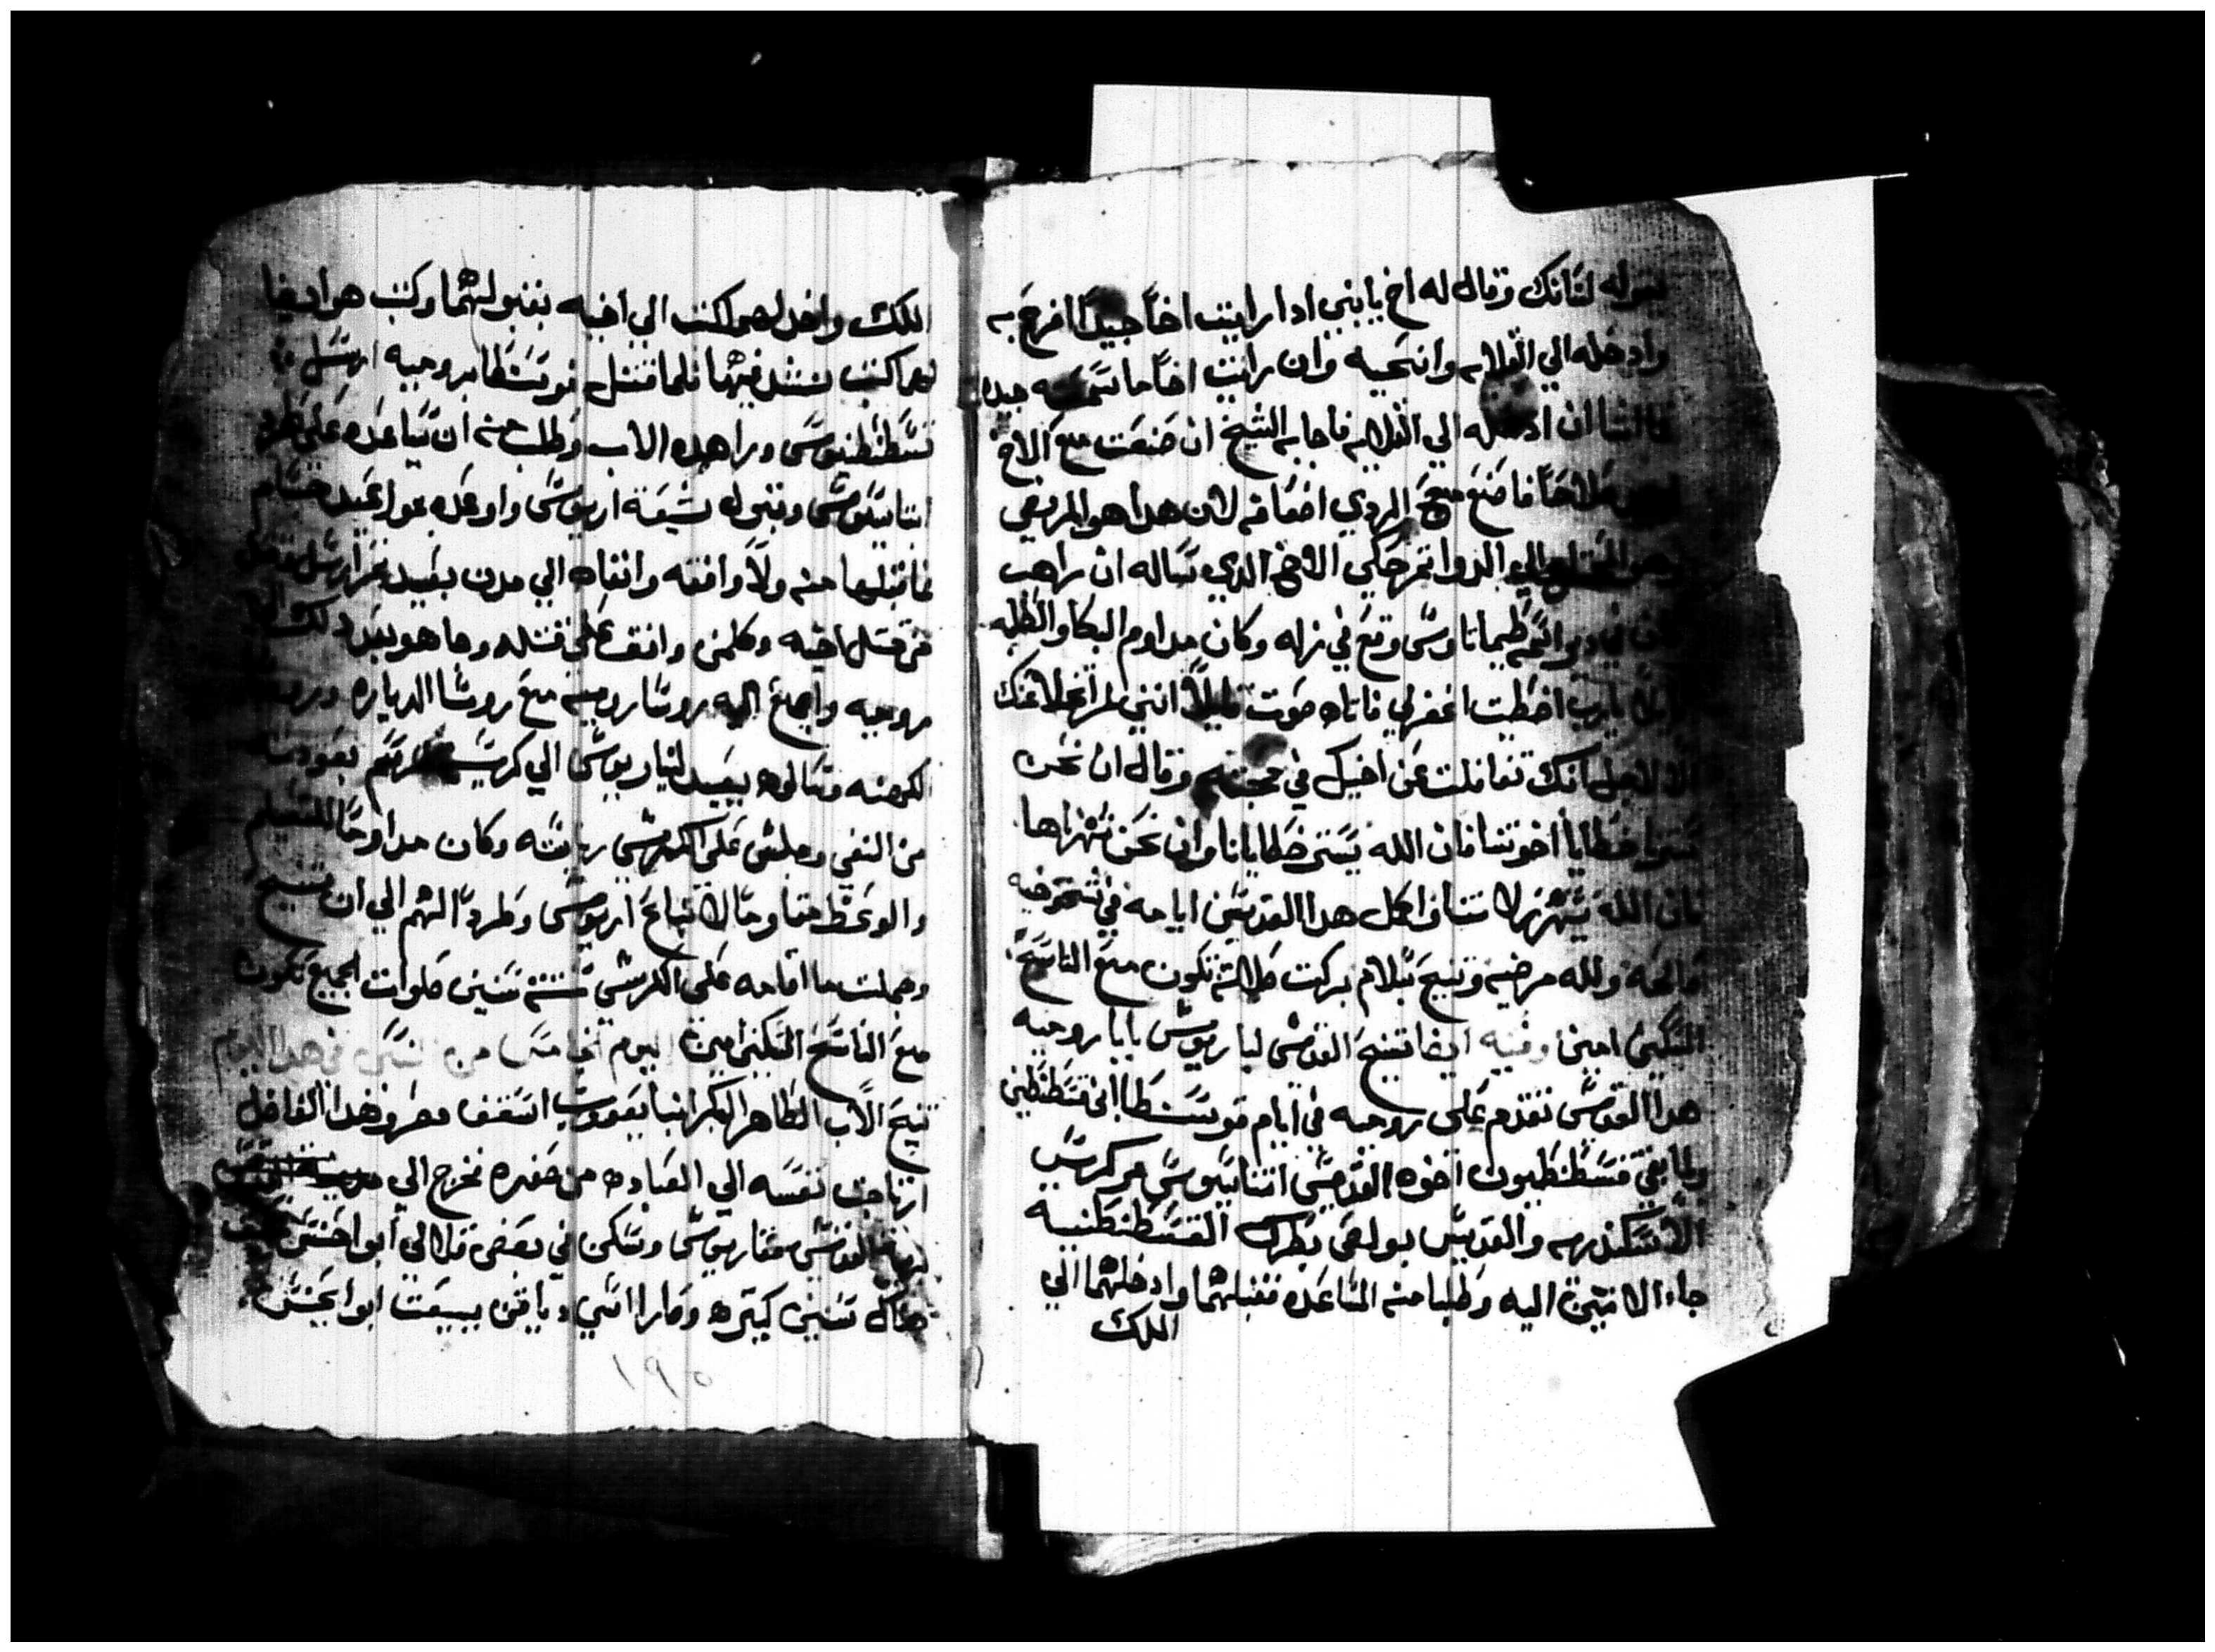 لسانك وقال له اخ يا بني ادا رايت اخاً جيداً افرح به
وادخله الي القلايه وانحيه وان رايت اخاً ما سمعته جيده
ان ادخله الي القلايه فاجابه الشيخ ان صنعت مع الاخ
صلاحاً فاصنع مع الردي اضعافه لان هدا هو المريض
الي الدوا تم حكي الاخ الدي ساله ان راهب
في دير انبا طيماتاوس وقع في زله وكان مداوم البكا والطلبه
يارب اخطيت اغفر لي فاتاه صوت قايلاً انني لم اتخلا عنك
الا لاجل انك تغافلت عن اخيك في محنته وقال ان نحن
سترنا خطايا اخوتنا فان الله يستر خطايانا وان نحن نشهرها
فان الله يشهرنا لا سنا فاكمل هدا القديس ايامه في شيخوخه
صالحه ولله مرضيه وتنيح بسلام بركت صلاته تكون مع الناسخ
المسكين امين وفيه ايضا تنيح القديس ليباريوس بابا روميه
هدا القديس تقدم علي روميه في ايام قوسسطا ابن قسطنطين
ولما نفي قسطنطيون اخوه القديس اتناسيوس من كرسي
الاسكندريه والقديس بولص بطرك القسطنطنيه
جاء الاتنين اليه وطلبا منه المساعده فقبلهما وادخلهما الي
الملك
الملك واخد لهما كتب الي اخيه بقبولهما وكتب هو ايضا
لهما كتب ينشد فيها فلما قتل قوسسطا بروميه ارسل
قسطنطنيوس ورا هده الاب وطلب منه ان يساعده علي طرد
اتناسيوس وقبول شيعة اريوس واوعده بمواعيد جسام
فما قبلها منه ولا وافقه وانفاه الي مدن بعيده
من قتل اخيه وكلمن وافق علي قتله وما هو بعد دلك
روميه واجمع اليه روسا روميه مع روسا الدياره
الكهنه وسالوه يعيد ليباريوس الي كرسيه فرسم بعودته
من النفي وجلس علي الكرسي رياسته وكان مداوماً للتعليم
والوعظ مقاوماً لاتباع اريوس وطرداً لهم الي ان تنيح
وجملت ما اقامه علي الكرسي ستة سنين صلوات الجميع تكون
مع الناسخ المسكين امين اليوم الخامس من النسي في هدا اليوم
تنيح الاب الطاهر المكرم انبا يعقوب اسقف مصر وهدا الفاضل
ارتاحت نفسه الي العباده من صغره فخرج الي
القديس مقاريوس وسكن في بعض قلالي ابو احنس
هناك سنين كتيره وصارا امين وياقن ببيعت ابو ايحنس
١٩٥